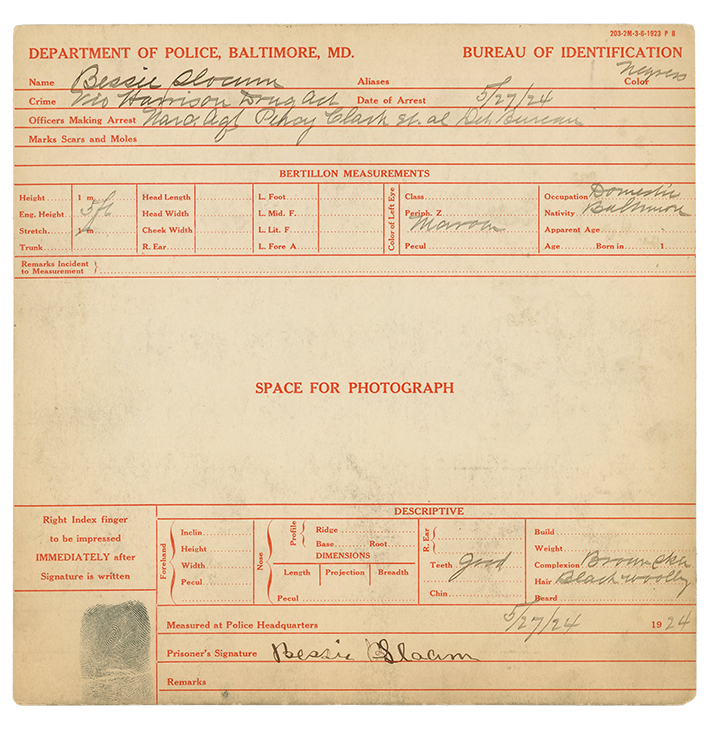 203-2M-3-6-1923 P B
DEPARTMENT OF POLICE, BALTIMORE, MD. BUREAU OF IDENTIFICATION
Name Bessie Slocum Aliases Color Negress
Crime Vio Harrison Drug Act Date of Arrest 5/27/24
Officers Making Arrest Narc. Agt Clark et. al Det. Bureau
Marks Scars and Moles
BERTILLON MEASUREMENTS
Height 1 m Head Length L. Foot Color of Left Eye Class Occupation Domestic
Eng. Height 5/6 Head Width L. Mid. F. Periph. Z Maroon Nativity Baltimore
Stretch 1 m Cheek Width L. Lit. F Apparent Age
Trunk R. Ear L. Fore A Pecul Age Born in 1
Remarks Incident
to Measurement
SPACE FOR PHOTOGRAPH
DESCRIPTIVE
Right Index finger
to be impressed
IMMEDIATELY after
Signature is written
Forehand
Inclin
Height
Width
Pecul
Nose
Profile
Ridge
Base Root
DIMENSIONS
Length Projection Breadth
Pecul
R. Ear
Teeth good
Chin
Build
Weight
Complexion Brown
Hair Black woolly
Beard
Measured at Police Headquarters 5/27/24 1924
Prisoner's Signature Bessie Slocum
Remarks